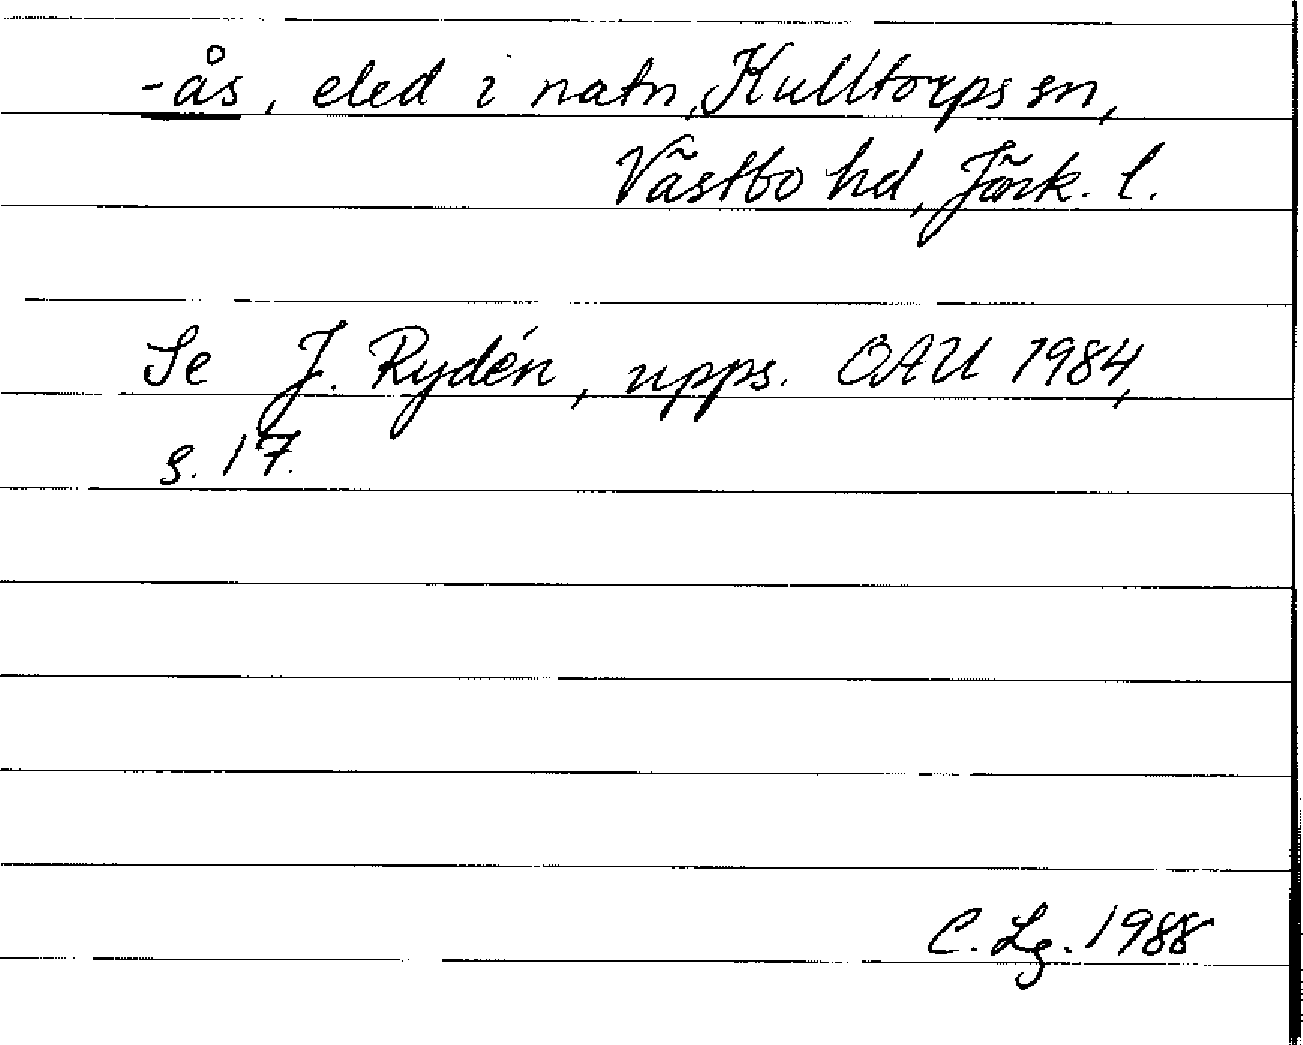 -ås, eled i natn, Kulltorps sn,
Västbo hd, Jönk. l.
Se J. Rydén, upps. OAU 1984,
s. 17.
C. Lg. 1988